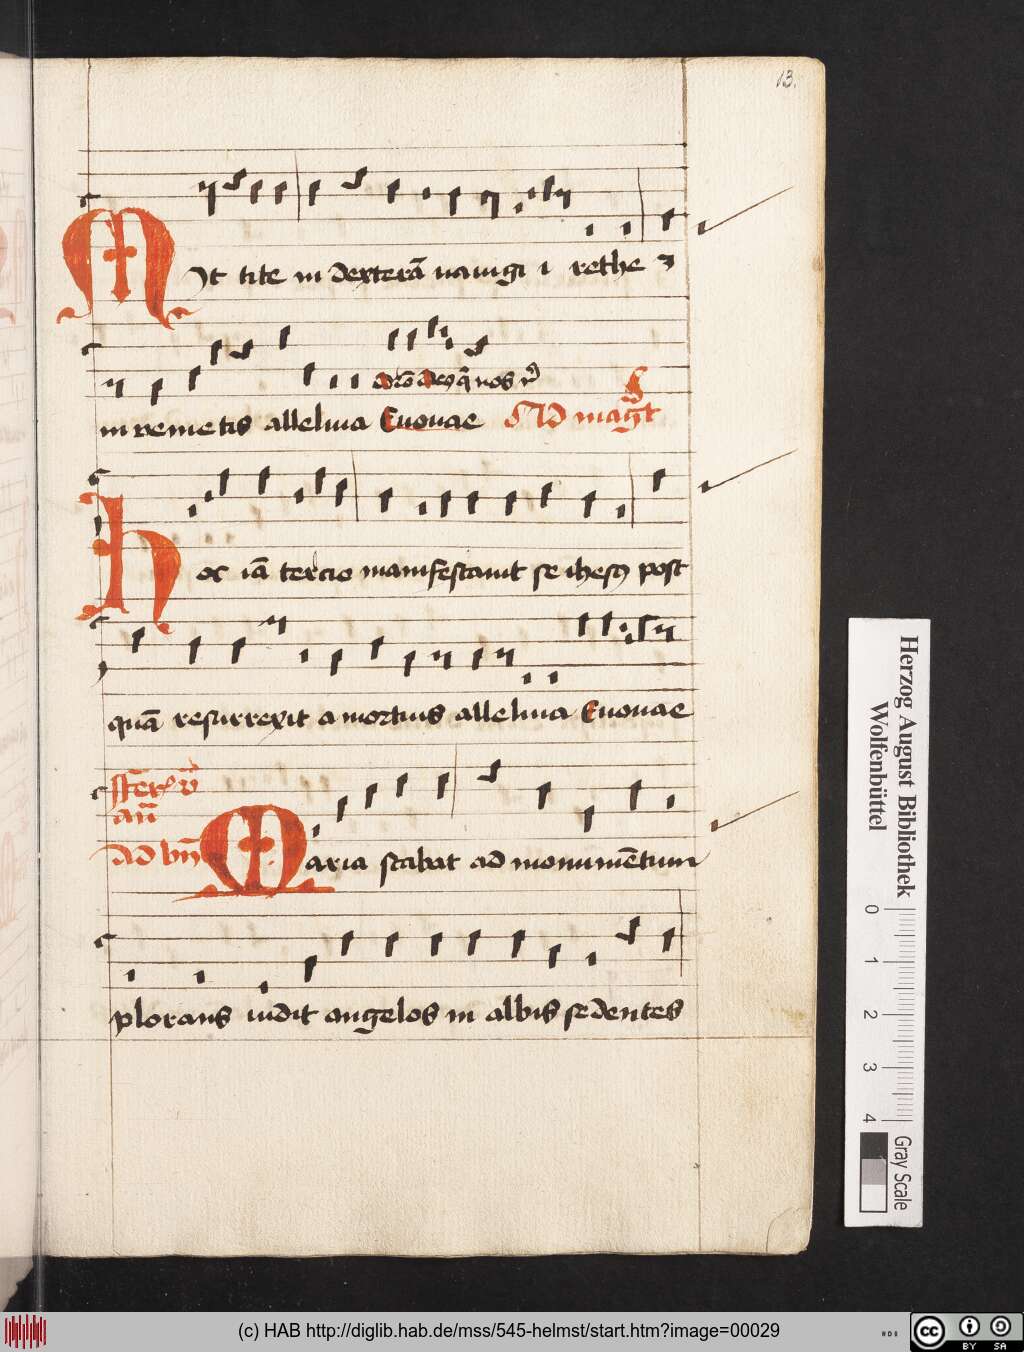 13.
Mit tite in dexterā nauigi i rethe ⁊
in venietis alleluia Euouae Ad mag̅t
Hoc iā tercio manifestauit se ihesꝯ post
quā resurrexit a mortuis alleluia Euouae
an̄
ad bn̄
Maria stabat ad monumētum
plorans uidit angelos in albis sedentes
Herzog August Bibliothek
Wolfenbüttel
0 1 2 3 4
Gray Scale
(c) HAB http://diglib.hab.de/mss/545-helmst/start.htm?image=00029
cc BY SA